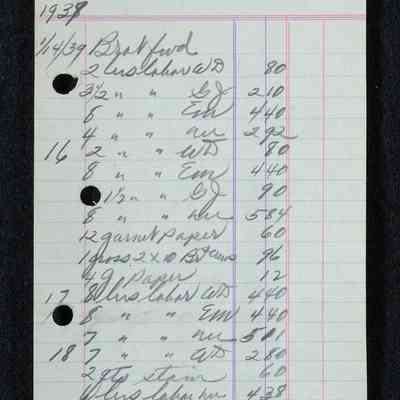 1939
1/14/39 Brot fwd
2 hrs labor WD 80
3 1/2 " " GJ 210
8 " " EM 440
4 " " nu 292
16 2 " " WD 80
8 " " EM 440
1 1/2 " GJ 90
8 " " nu 584
12 garnet paper 60
1 gross 2 x 10 Bt 96
4 J. Paper 12
17 8 hrs labor WD 440
8 " " EM 440
7 " " nu 511
18 7 " " WD 280
2 stain 60
6 hrs labor nu 438